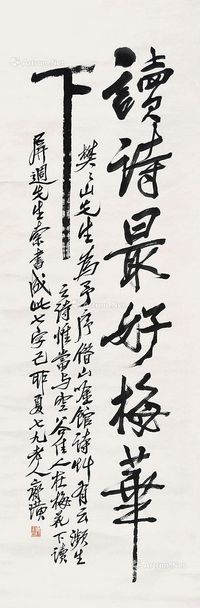 讀詩最好梅華
下
樊〻山先生為予序借山唫館詩艸有云瀕生
之詩惟當与空谷佳人在梅花下讀
屏週先生索書成此七字己卯夏七九老人齊璜